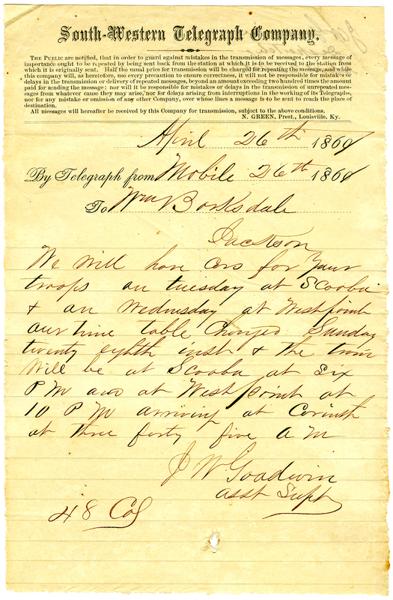 South-Western Telegraph Company.
THE PUBLIC are notified, that in order to guard against mistakes in the transmission of messages, every message of
importance ought to be repeated by being sent back from the station at which it is to be received to the station from
which it is originally sent. Half the usual price for transmission will be charged for repeating the message, and while
this company will, as heretofore, use every precaution to ensure correctness, it will not be responsible for mistakes or
delays in the transmission or delivery of repeated messages, beyond an amount exceeding two hundred times the amount
paid for sending the message; nor will it be responsible for mistakes or delays in the transmission of unrepeated messages
from whatever cause they may arise, nor for delays arising from interruptions in the working of its Telegraphs,
nor for any mistake or omission of any other Company, over whose lines a message is to be sent to reach the place of
destination.
All messages will hereafter be received by this Company for transmission, subject to the above conditions.
N. GREEN, Prest., Louisville, Ky.
April 26th 1861
By Telegraph from Mobile 26th 1861
To Wm Barksdale
Jackson
We will have cars for your
troops on tuesday at Scooba
& on Wednesday at West point
our time table changes Sunday
twenty eighth inst & the train
Will be at Scooba at Six
P M and at West point at
10 P M arriving at Corinth
at three forty five A M
J W Goodwin
asst Supt
48 Col